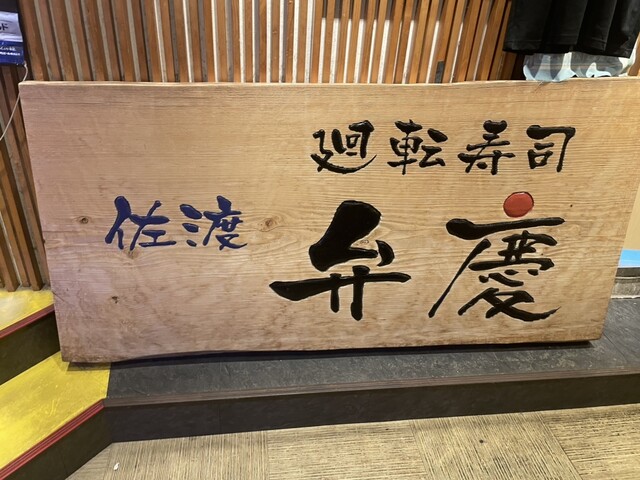 廻転寿司
佐渡
弁慶